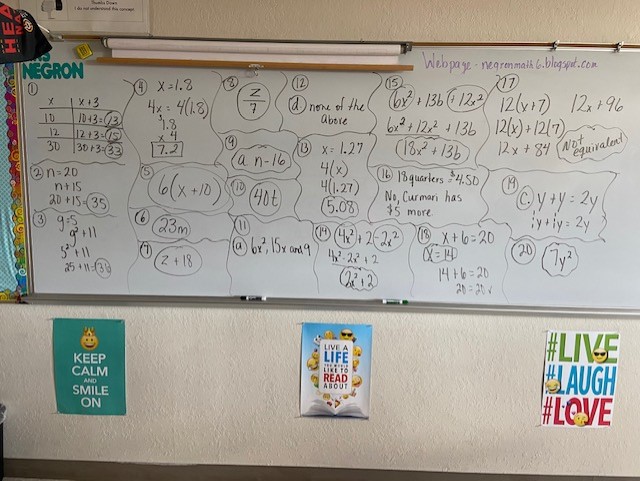 Thumbs Down
I do not understand this concept.
HEA
NA
MS
NEGRON
Webpage - negronmath6.blogspot.com
①
x | x+3
10 | 10+3=13
12 | 12+3=15
30 | 30+3=33
② n=20
n+15
20+15=35
③ g=5
g²+11
5²+11
25+11=36
④ x=1.8
4x = 4(1.8)
1.8
x 4
7.2
⑤ 6(x+10)
⑥ 23m
⑦ z+18
⑧ z/7
⑨ a n-16
⑩ 40t
⑪
ⓐ 6x², 15x and 9
⑫
ⓓ none of the
above
⑬ x = 1.27
4(x)
4(1.27)
5.08
⑭ 4x²+2-2x²
4x²-2x²+2
2x²+2
⑮
6x²+13b+12x²
6x²+12x²+13b
18x²+13b
⑯ 18 quarters = $4.50
No, Curman has
$5 more.
⑰
12(x+7) 12x+96
12(x)+12(7)
12x+84 Not equivalent
⑱ x+6=20
x=14
14+6=20
20=20✓
⑲ C. y+y=2y
1y+1y=2y
⑳ 7y²
KEEP
CALM
AND
SMILE
ON
LIVE A
LIFE
YOU WOULD
LIKE TO
READ
ABOUT
#LIVE
#LAUGH
#LOVE